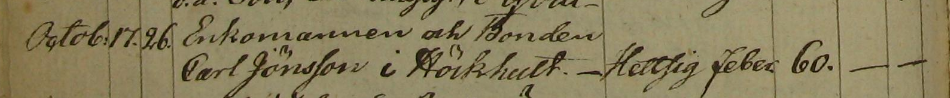 Octob: 17. 26. Enkomannen och Bonden
Carl Jönsson i Höckhult. – Hettsig feber 60. — —